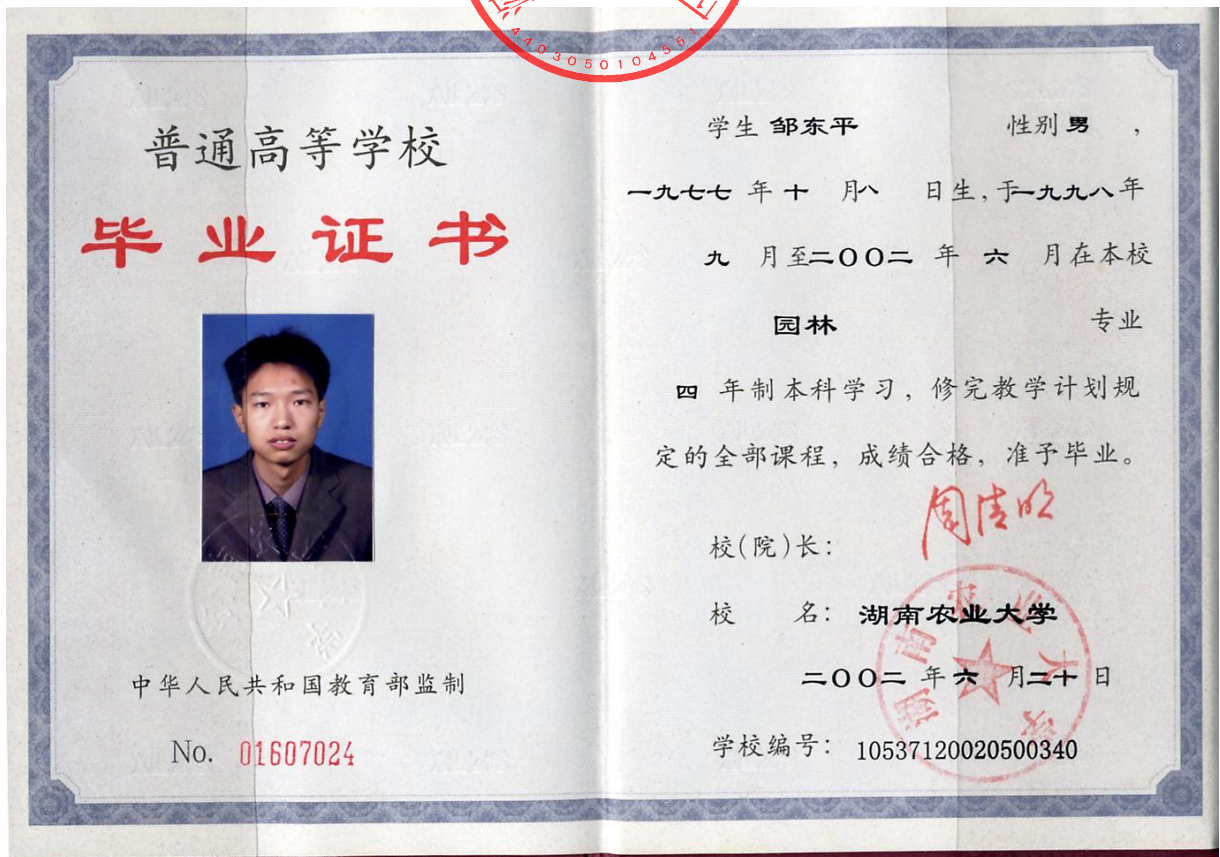 4403050104551
普通高等学校
毕业证书
中华人民共和国教育部监制
No. 01607024
学生 邹东平 性别 男 ，
一九七七 年 十 月 八 日生，于一九九八年
九 月至二〇〇二 年 六 月在本校
园林 专业
四 年制本科学习，修完教学计划规
定的全部课程，成绩合格，准予毕业。
校(院)长： 周清明
校 名： 湖南农业大学
湖南农业大学
二〇〇二 年 六 月二十 日
学校编号： 105371200205003​40